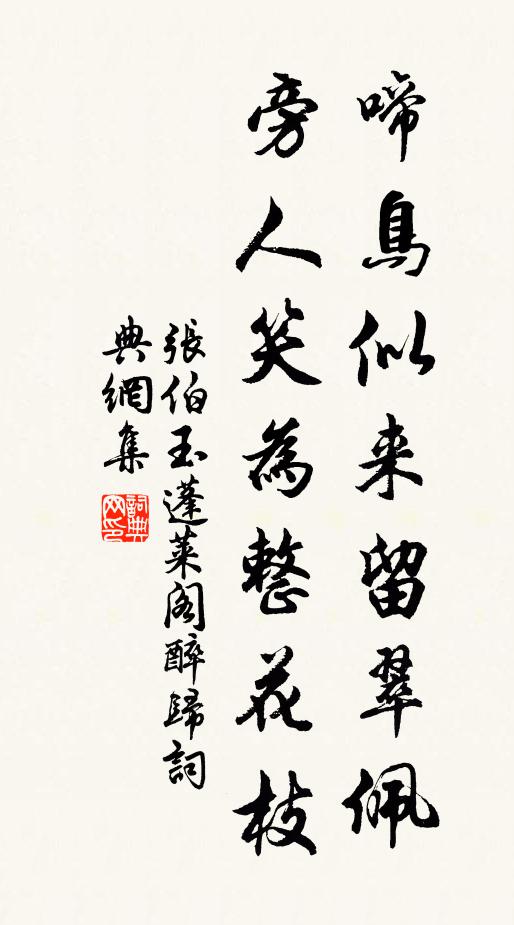 啼鳥似来留翠佩
旁人笑為整花枝
張伯玉蓬莱阁醉歸詞
典網集
詞典网印